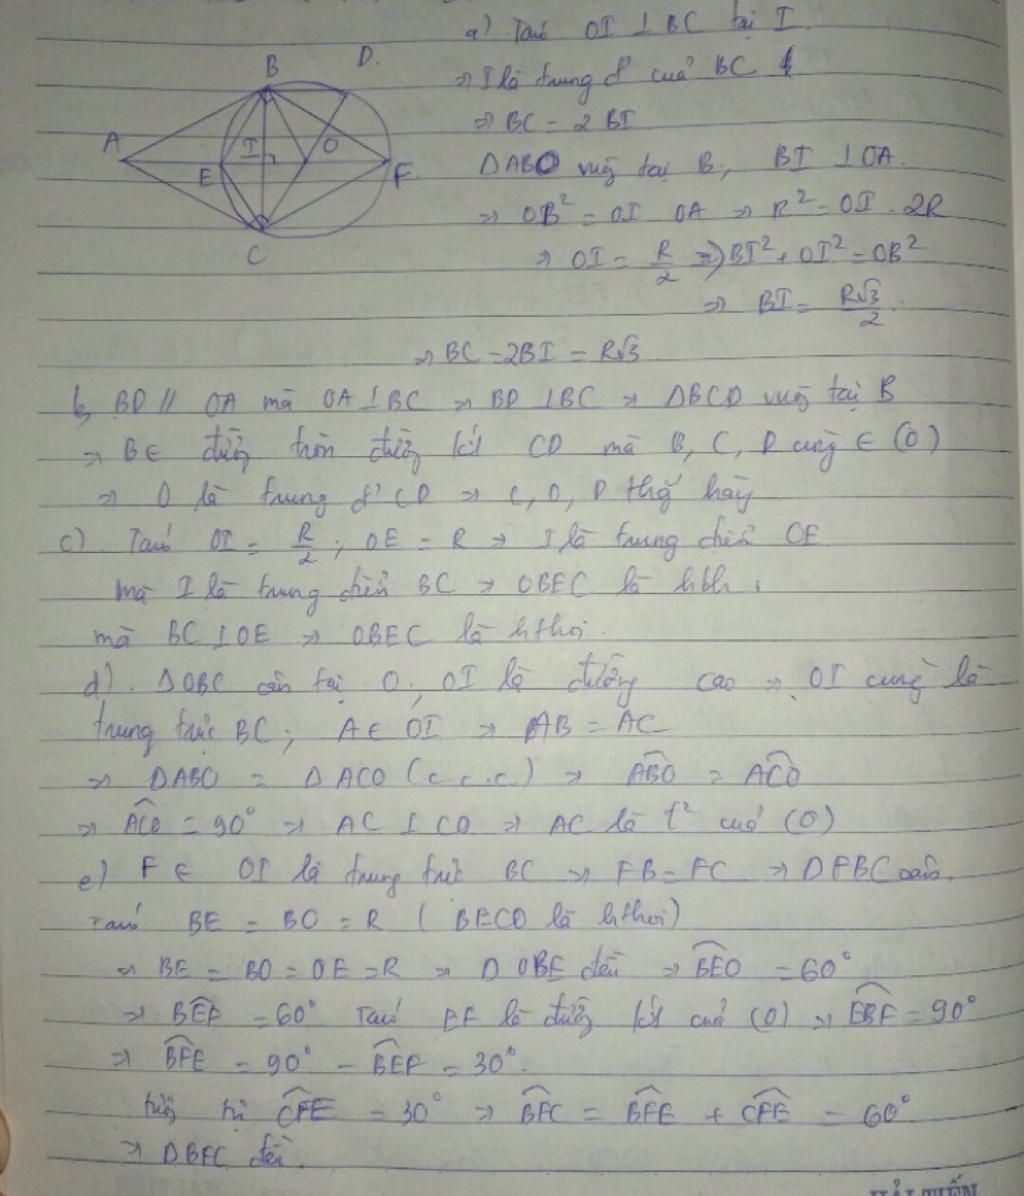 a) Tacó OI ⊥ BC tại I
⇒ I là trung đ' của BC
⇒ BC = 2 BI
ΔABO vuôg tại B, BI ⊥ OA.
⇒ OB² = OI . OA ⇒ R² = OI . 2R
⇒ OI = R/2 ⇒ BI² + OI² = OB²
⇒ BI = R√3/2
⇒ BC = 2BI = R√3
B D. A I O E F. C
b, BD // OA mà OA ⊥ BC ⇒ BD ⊥ BC ⇒ ΔBCD vuôg tại B
⇒ B ∈ đườg tròn đườg kíh CD mà B, C, D cùg ∈ (O)
⇒ O là trung đ' CD ⇒ C, O, D thẳg hàg
c) Tacó OI = R/2 ; OE = R ⇒ I là trung điểm OE
mà I là trung điểm BC ⇒ OBEC là hbh
mà BC ⊥ OE ⇒ OBEC là hthoi.
d). ΔOBC cân tại O, OI là đường cao ⇒ OI cũng là
trung trực BC; A ∈ OI ⇒ AB = AC
⇒ ΔABO = ΔACO (c.c.c) ⇒ ABO = ACO
⇒ ACO = 90° ⇒ AC ⊥ CO ⇒ AC là t² của (O)
e) F ∈ OI là trung trực BC ⇒ FB = FC ⇒ ΔFBC cân.
Tacó BE = BO = R ( BECO là hthoi)
⇒ BE = BO = OE = R ⇒ Δ OBE đều ⇒ BEO = 60°
⇒ BEF = 60° Tacó EF là đườg kíh của (O) ⇒ EBF = 90°
⇒ BFE = 90° - BEF = 30°.
CFE = 30° ⇒ BFC = BFE + CFE = 60°
⇒ ΔBFC đều.
HẢI TIẾN